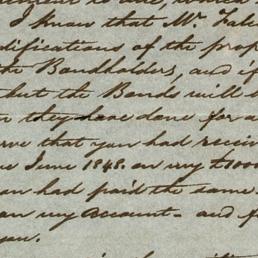 I know that Mr Fal
difications of the prop
the Bondholders, and if
but the Bonds will b
they have done for a
rve that you had receiv
June 1848. on my £1000
had paid the same
on my account - and f
you.